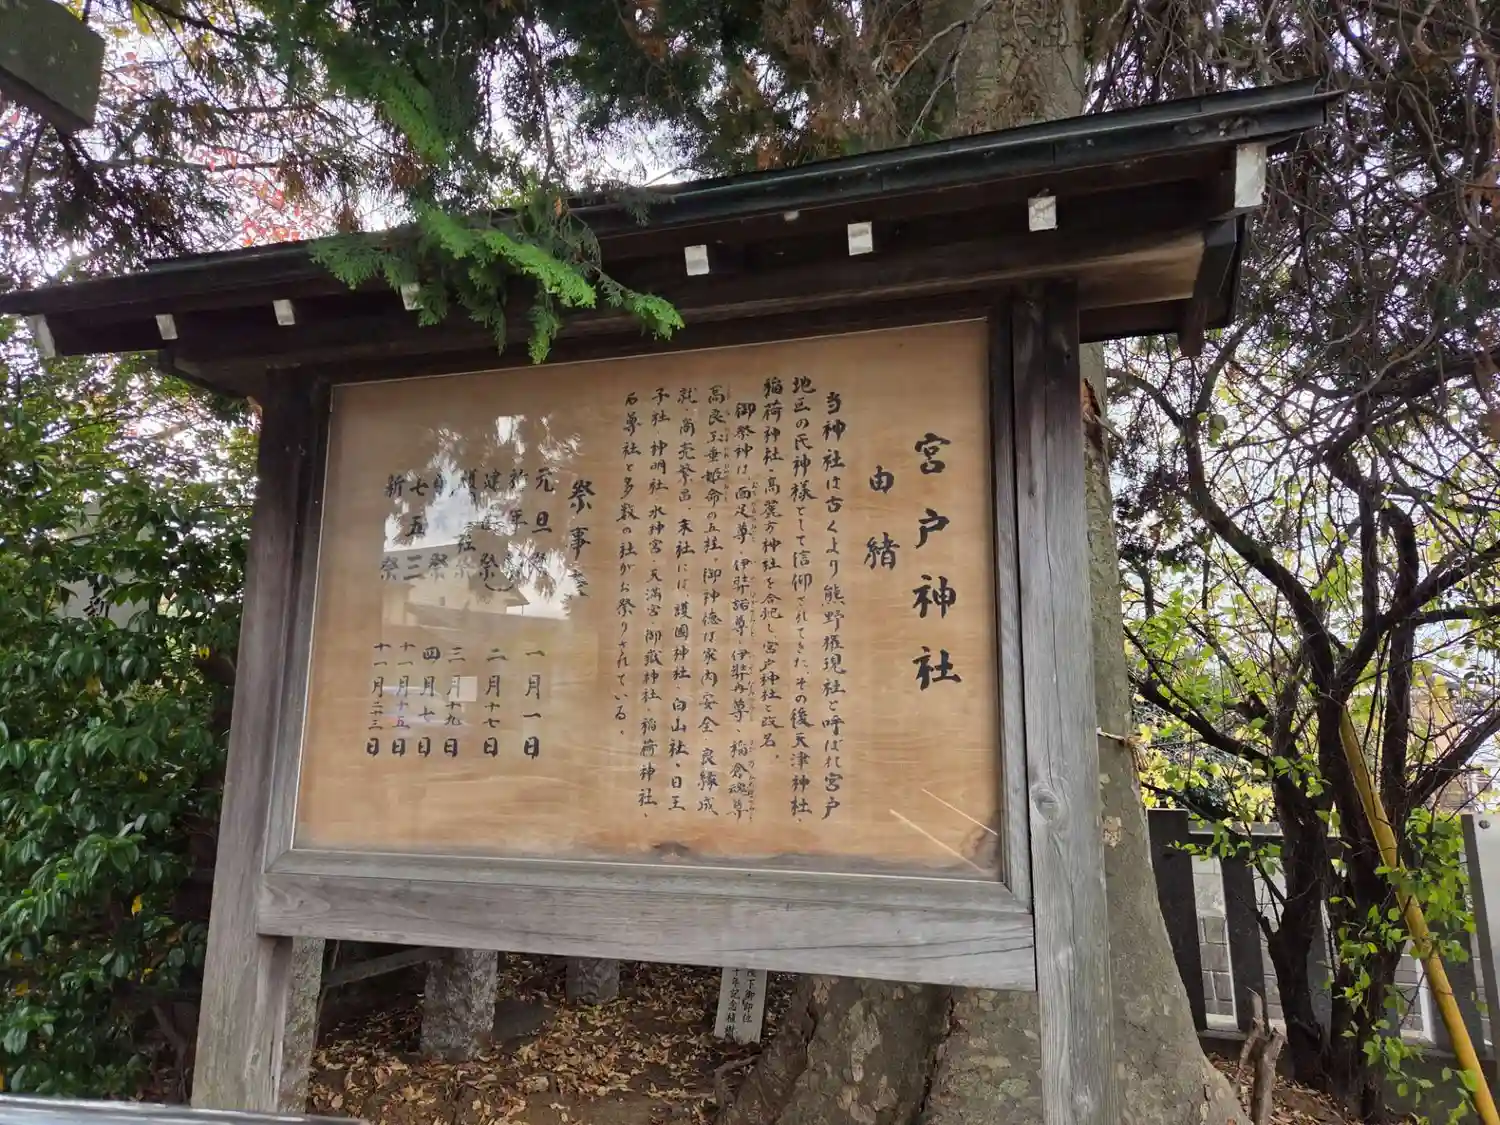 宮戸神社
由緒
当神社は古くより熊野権現社と呼ばれ宮戸
地区の氏神様として信仰されてきた。その後天津神社
稲荷神社・高麗方神社を合祀し、宮戸神社と改名。
御祭神は面足尊、伊弉諾尊、伊弉冉尊、稲倉魂尊
高良玉垂姫命の五柱。御神徳は家内安全・良縁成
就・商売繁昌。末社には、護国神社・白山社・日王
子社・神明社・水神宮・天満宮・御嶽神社・稲荷神社・
石尊社と多数の社がお祭りされている。
祭事
元旦祭 一月一日
祈年 二月十七日
建 祭 三月十九日
祭 四月七日
七五三 十一月十五日
新 祭 十一月二十三日
年記念植樹